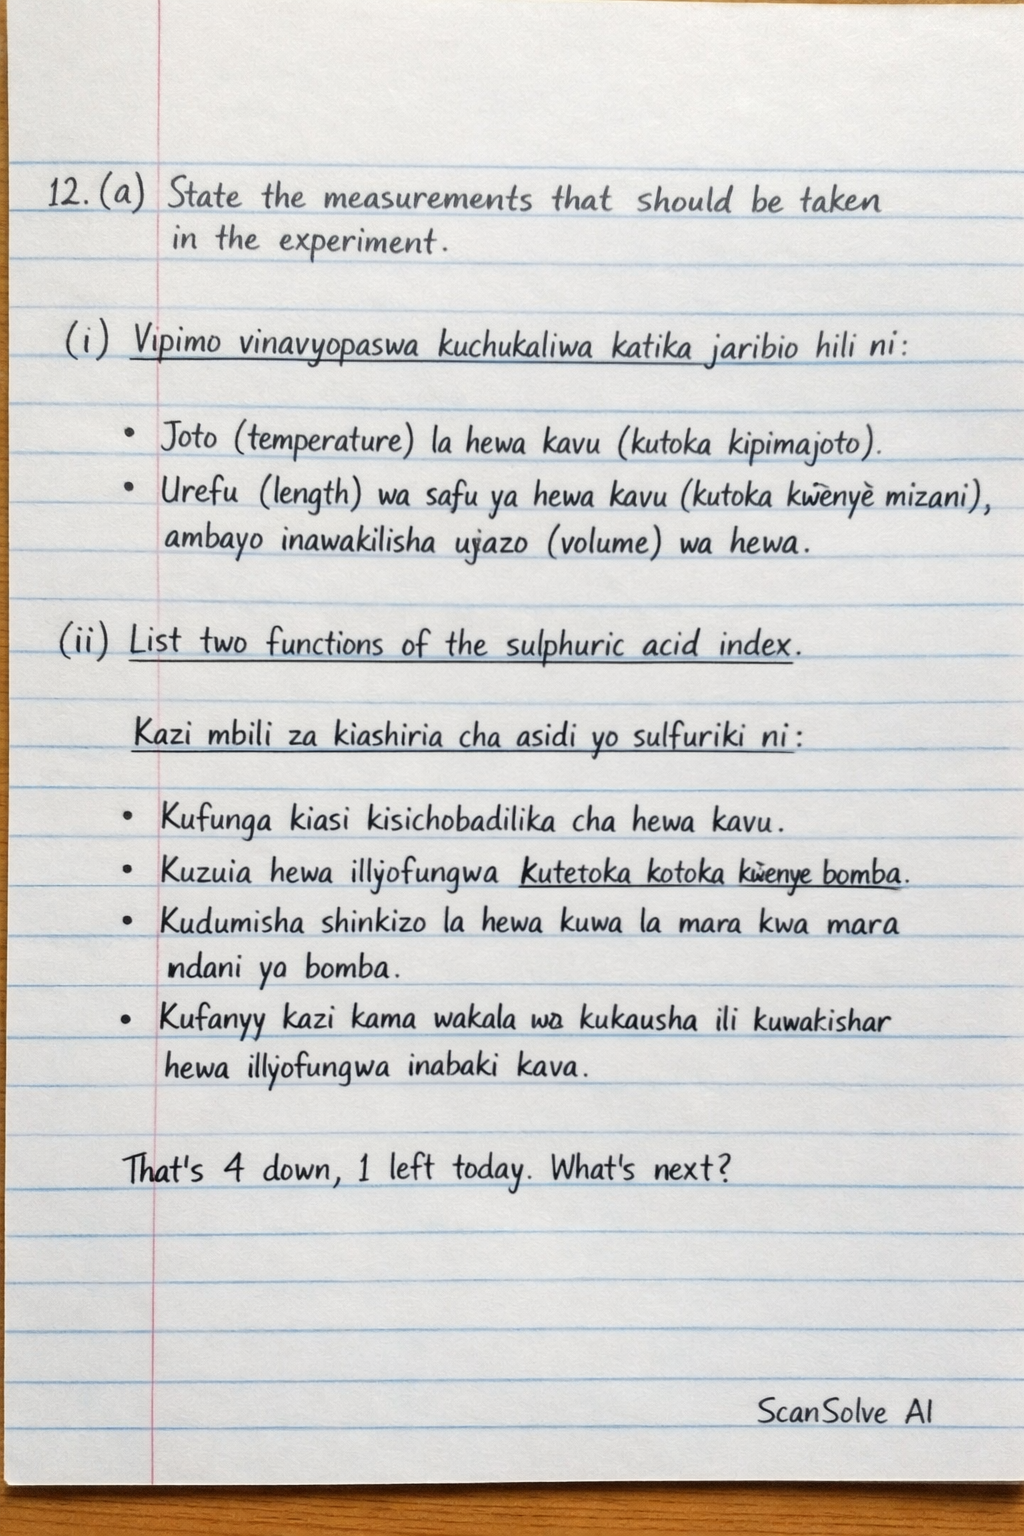 12. (a) State the measurements that should be taken
in the experiment.
(i) Vipimo vinavyopaswa kuchukaliwa katika jaribio hili ni:
• Joto (temperature) la hewa kavu (kutoka kipimajoto).
• Urefu (length) wa safu ya hewa kavu (kutoka kwènyè mizani),
ambayo inawakilisha ujazo (volume) wa hewa.
(ii) List two functions of the sulphuric acid index.
Kazi mbili za kiashiria cha asidi yo sulfuriki ni:
• Kufunga kiasi kisichobadilika cha hewa kavu.
• Kuzuia hewa illyofungwa kutetoka kotoka kwenye bomba.
• Kudumisha shinkizo la hewa kuwa la mara kwa mara
ndani ya bomba.
• Kufanyy kazi kama wakala wa kukausha ili kuwakishar
hewa illyofungwa inabaki kava.
That's 4 down, 1 left today. What's next?
ScanSolve AI